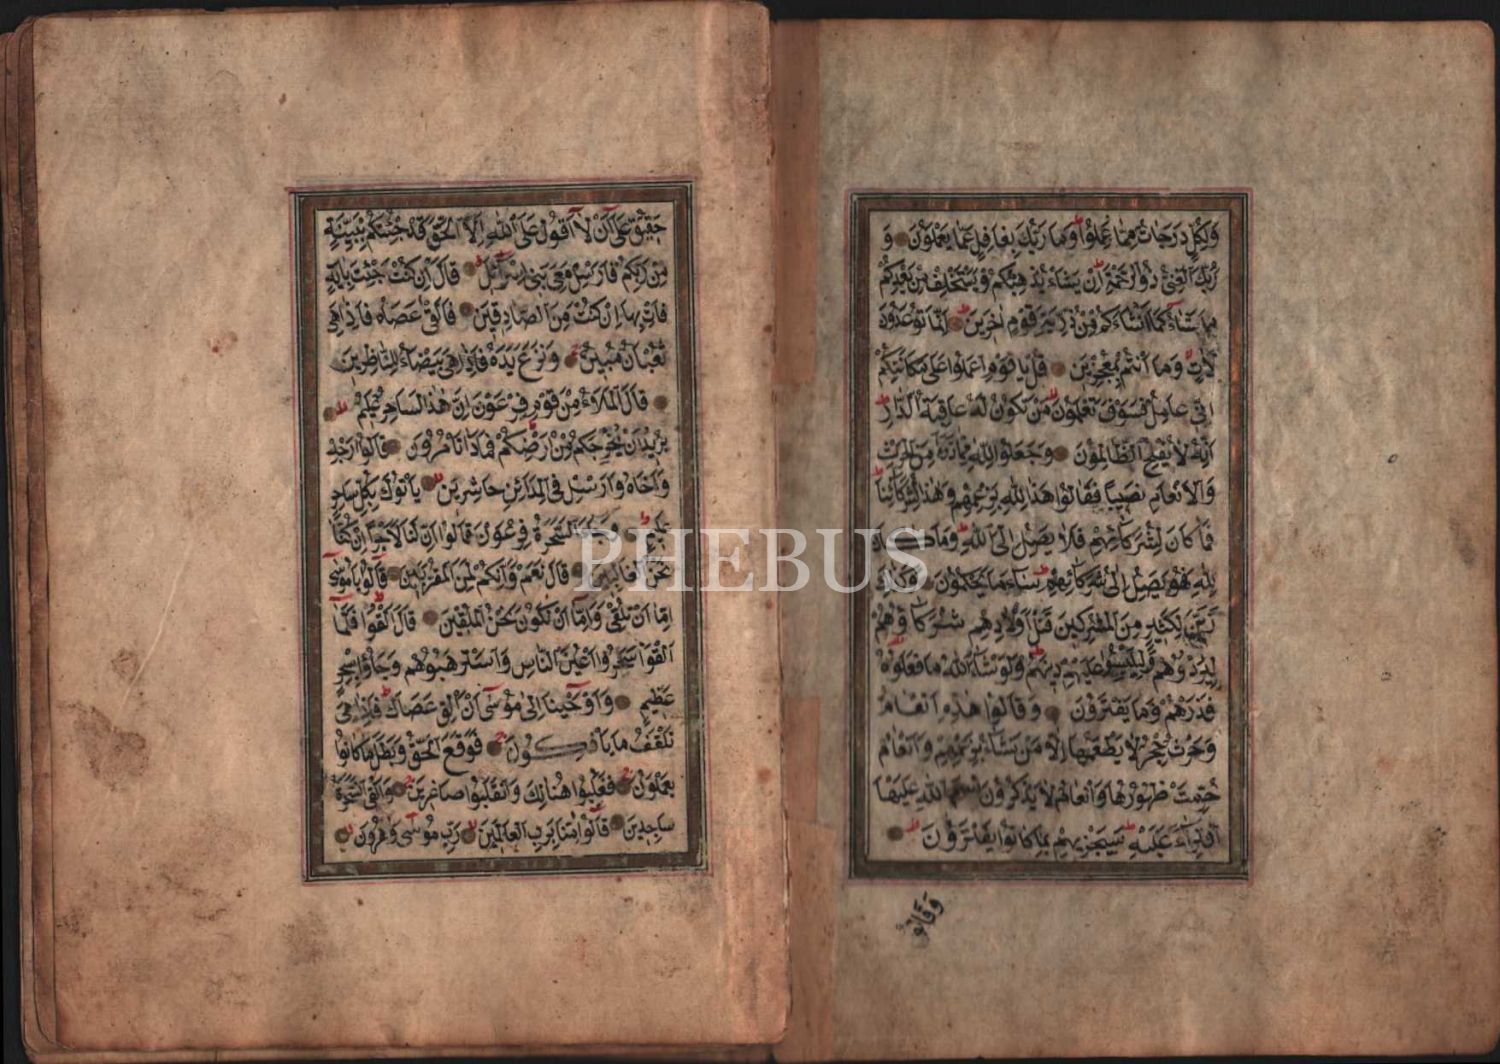 وَلِكُلٍّ دَرَجَاتٌ مِمَّا عَمِلُوا وَمَا رَبُّكَ بِغَافِلٍ عَمَّا يَعْمَلُونَ وَ
رَبُّكَ الْغَنِيُّ ذُو الرَّحْمَةِ اِنْ يَشَاءْ يُذْهِبْكُمْ وَيَسْتَخْلِفْ مِنْ بَعْدِكُمْ
مَا يَشَاءُ كَمَا اَنْشَاَكُمْ مِنْ ذُرِّيَّةِ قَوْمٍ اٰخَرِينَ اِنَّمَا تُوعَدُونَ
لَاٰتٍ وَمَا اَنْتُمْ بِمُعْجِزِينَ قُلْ يَا قَوْمِ اعْمَلُوا عَلَى مَكَانَتِكُمْ
اِنِّي عَامِلٌ فَسَوْفَ تَعْلَمُونَ مَنْ تَكُونُ لَهُ عَاقِبَةُ الدَّارِ
اِنَّهُ لَا يُفْلِحُ الظَّالِمُونَ وَجَعَلُوا لِلّٰهِ مِمَّا ذَرَاَ مِنَ الْحَرْثِ
وَالْاَنْعَامِ نَصِيبًا فَقَالُوا هٰذَا لِلّٰهِ بِزَعْمِهِمْ وَهٰذَا لِشُرَكَائِنَا
فَمَا كَانَ لِشُرَكَائِهِمْ فَلَا يَصِلُ اِلَى اللّٰهِ وَمَا كَانَ
لِلّٰهِ فَهُوَ يَصِلُ اِلَى شُرَكَائِهِمْ سَاءَ مَا يَحْكُمُونَ وَكَذٰلِكَ
زَيَّنَ لِكَثِيرٍ مِنَ الْمُشْرِكِينَ قَتْلَ اَوْلَادِهِمْ شُرَكَاؤُهُمْ
لِيُرْدُوهُمْ وَلِيَلْبِسُوا عَلَيْهِمْ دِينَهُمْ وَلَوْ شَاءَ اللّٰهُ مَا فَعَلُوهُ
فَذَرْهُمْ وَمَا يَفْتَرُونَ وَقَالُوا هٰذِهِ اَنْعَامٌ
وَحَرْثٌ حِجْرٌ لَا يَطْعَمُهَا اِلَّا مَنْ نَشَاءُ بِزَعْمِهِمْ وَاَنْعَامٌ
حُرِّمَتْ ظُهُورُهَا وَاَنْعَامٌ لَا يَذْكُرُونَ اسْمَ اللّٰهِ عَلَيْهَا
افْتِرَاءً عَلَيْهِ سَيَجْزِيهِمْ بِمَا كَانُوا يَفْتَرُونَ
وَقَالُو
حَقِيقٌ عَلَى اَنْ لَا اَقُولَ عَلَى اللّٰهِ اِلَّا الْحَقَّ قَدْ جِئْتُكُمْ بِبَيِّنَةٍ
مِنْ رَبِّكُمْ فَاَرْسِلْ مَعِيَ بَنِي اِسْرَائِيلَ قَالَ اِنْ كُنْتَ جِئْتَ بِاٰيَةٍ
فَاْتِ بِهَا اِنْ كُنْتَ مِنَ الصَّادِقِينَ فَاَلْقَى عَصَاهُ فَاِذَا هِيَ
ثُعْبَانٌ مُبِينٌ وَنَزَعَ يَدَهُ فَاِذَا هِيَ بَيْضَاءُ لِلنَّاظِرِينَ
قَالَ الْمَلَاُ مِنْ قَوْمِ فِرْعَوْنَ اِنَّ هٰذَا لَسَاحِرٌ عَلِيمٌ
يُرِيدُ اَنْ يُخْرِجَكُمْ مِنْ اَرْضِكُمْ فَمَاذَا تَاْمُرُونَ قَالُوا اَرْجِهْ
وَاَخَاهُ وَاَرْسِلْ فِي الْمَدَائِنِ حَاشِرِينَ يَاْتُوكَ بِكُلِّ سَاحِرٍ
عَلِيمٍ وَجَاءَ السَّحَرَةُ فِرْعَوْنَ قَالُوا اِنَّ لَنَا لَاَجْرًا اِنْ كُنَّا
نَحْنُ الْغَالِبِينَ قَالَ نَعَمْ وَاِنَّكُمْ لَمِنَ الْمُقَرَّبِينَ قَالُوا يَا مُوسَى
اِمَّا اَنْ تُلْقِيَ وَاِمَّا اَنْ نَكُونَ نَحْنُ الْمُلْقِينَ قَالَ اَلْقُوا فَلَمَّا
اَلْقَوْا سَحَرُوا اَعْيُنَ النَّاسِ وَاسْتَرْهَبُوهُمْ وَجَاؤُا بِسِحْرٍ
عَظِيمٍ وَاَوْحَيْنَا اِلَى مُوسَى اَنْ اَلْقِ عَصَاكَ فَاِذَا هِيَ
تَلْقَفُ مَا يَاْفِكُونَ فَوَقَعَ الْحَقُّ وَبَطَلَ مَا كَانُوا
يَعْمَلُونَ فَغُلِبُوا هُنَالِكَ وَانْقَلَبُوا صَاغِرِينَ وَاُلْقِيَ السَّحَرَةُ
سَاجِدِينَ قَالُوا اٰمَنَّا بِرَبِّ الْعَالَمِينَ رَبِّ مُوسَى وَهٰرُونَ
PHEBUS